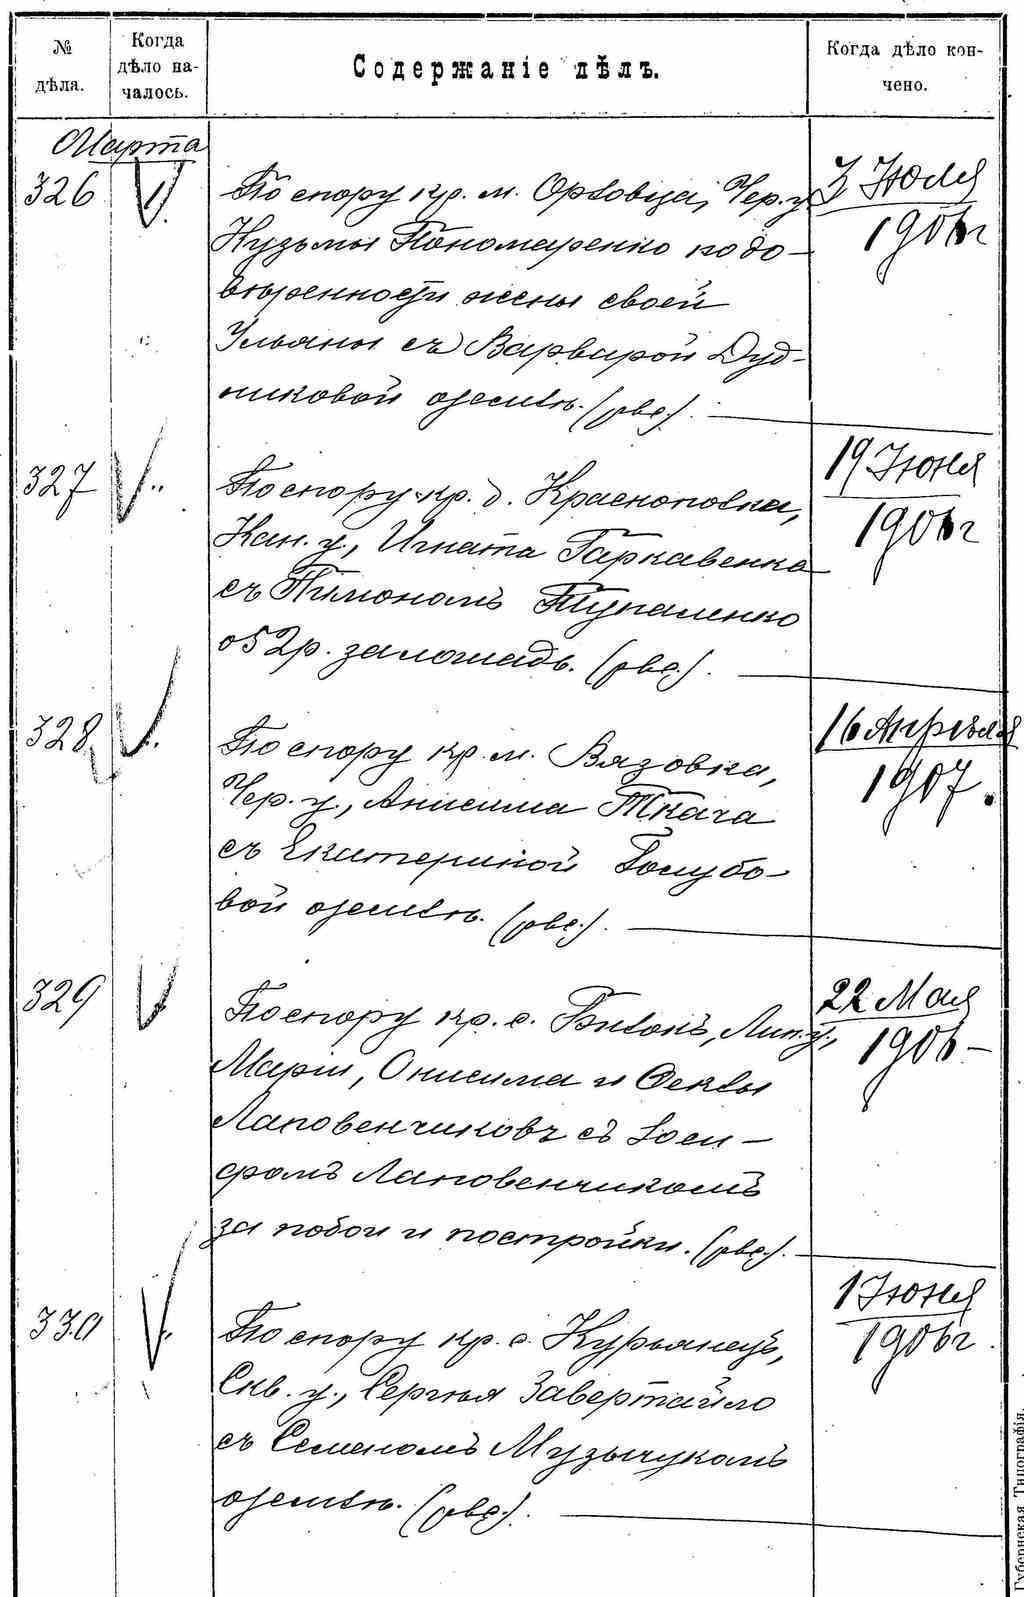 № дѣла.
Когда дѣло началось.
Содержаніе дѣлъ.
Когда дѣло кончено.
Марта
326 1.
По спору кр. м. Орловца, Чер. у.
Кузьмы Пономаренко по до-
вѣренности жены своей
Ульяны съ Варварой Дуд-
никовой о землѣ.
3 Июля
1906 г
327
По спору кр. д. Красноповка,
Кан. у., Игната Гаркавенко
съ Пимономъ Тупаленко
о 52 р. за лошадь.
19 Июня
1906 г
328
По спору кр. м. Вязовка,
Чер. у., Анисима Ткача
съ Екатериной Голубо-
вой о землѣ.
16 Апрѣля
1907.
329
По спору кр. с. Лип. у.,
Маріи, Онисима и Феклы
Лаповенчиковъ съ Іоси-
фомъ Лаповенчикомъ
за побои и постройки.
22 Мая
1906 -
330
По спору кр. с. Курьянецъ,
Скв. у., Сергѣя Завертайло
съ Семеномъ Музычукомъ
о землѣ.
1 Июня
1906 г
Губернская Типографія.